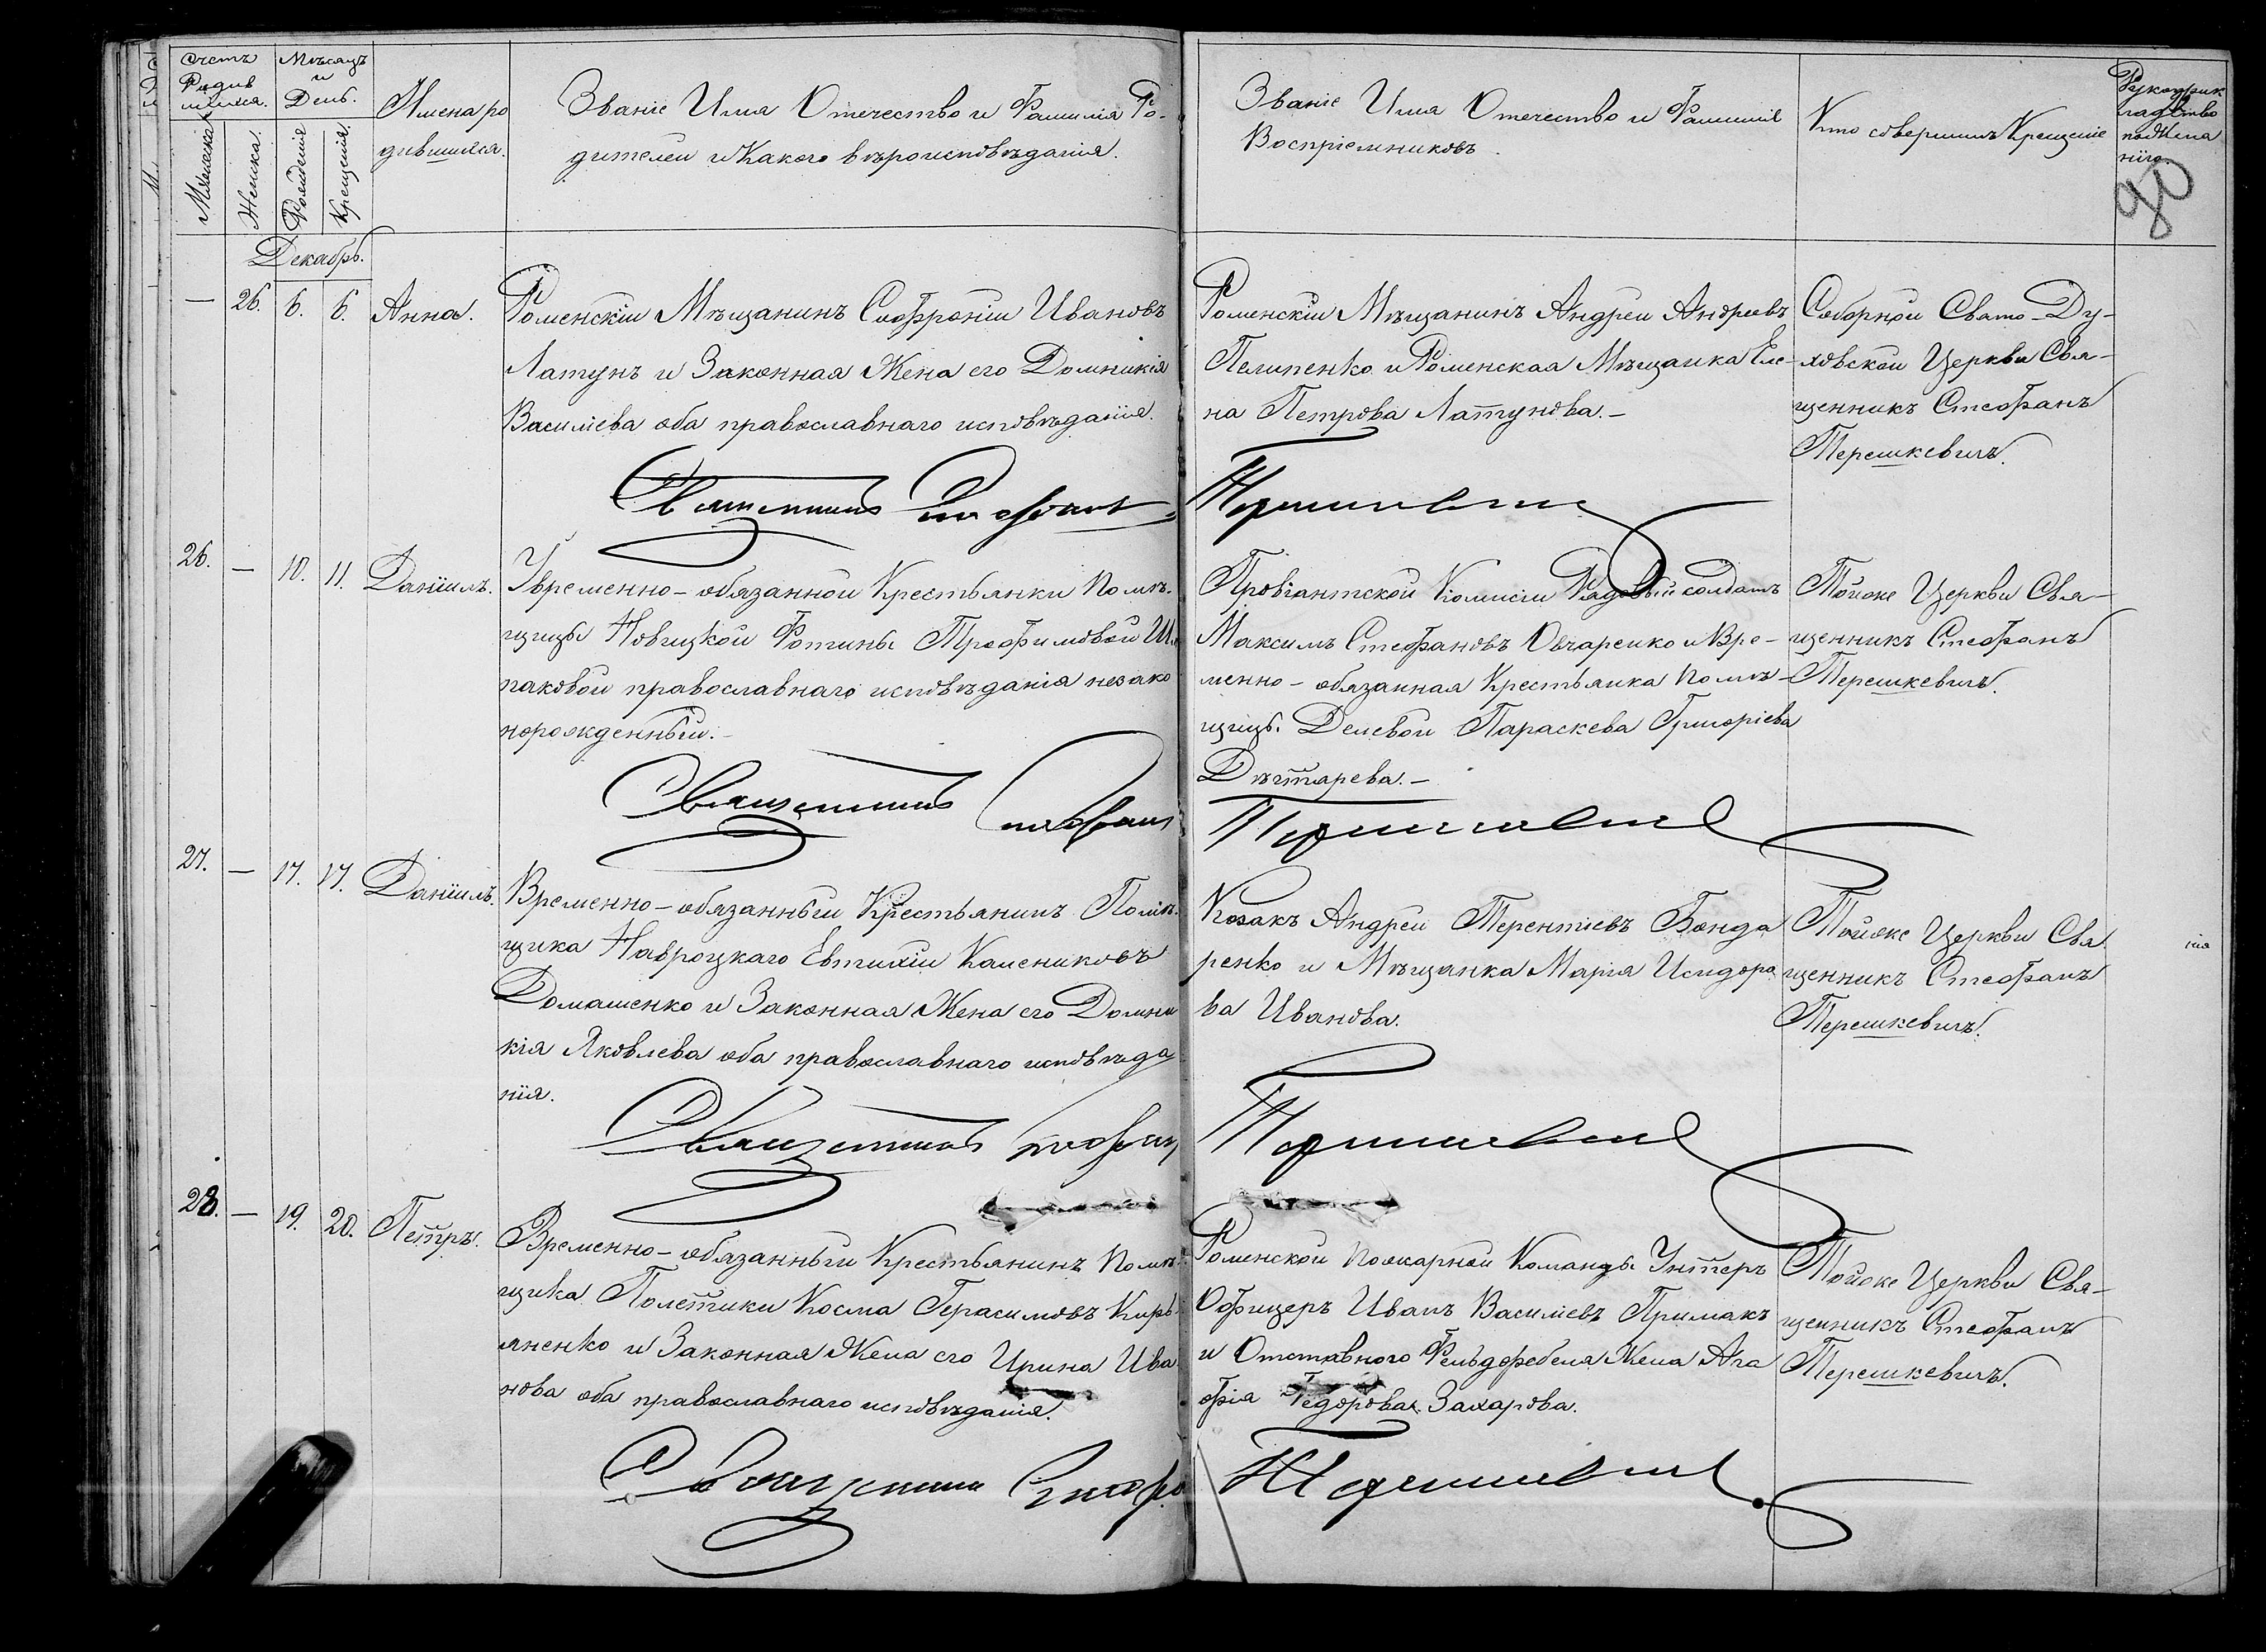 Счетъ Родив шихся.
Мѣсяцъ и День.
Мужеска
Женска.
Рожденія
Крещенія.
Имена ро
дившихся.
Званіе Имя Отечество и Фамилія Ро-
дителей и Какого вѣроисповѣданія.
Званіе Имя Отечество и Фамилія
Воспріемниковъ.
Кто совершилъ Крещеніе
Рукоприк
ладство
по Жела
нію.
80
Декабрь.
— 26. 6. 6. Анна.
Роменскій Мѣщанинъ Софроній Ивановъ
Латунъ и Законная Жена его Домникія
Василіева оба православнаго исповѣданія.
Роменскій Мѣщанинъ Андрей Андреевъ
Пелипенко и Роменская Мѣщанка Еле-
на Петрова Латунова.—
Соборной Свято-Ду-
ховской Церкви Свя-
щенникъ Стефанъ
Терешкевичъ.
Священникъ Стефанъ Терешкевичъ
26. — 10. 11. Даніилъ.
Увременно-обязанной Крестьянки Помѣ-
щицы Новицкой Фотины Трофимовой
паковой православнаго исповѣданія незако
норожденный.—
Провіантской Комисіи Рядовый солдатъ
Максимъ Стефановъ Овчаренко и Вре-
менно-обязанная Крестьянка Помѣ-
щицы Делевой Параскева Григоріева
Дѣгтярева.—
Тойже Церкви Свя-
щенникъ Стефанъ
Терешкевичъ.
Священникъ Стефанъ Терешкевичъ
27. — 17. 17. Даніилъ.
Временно-обязанный Крестьянинъ Помѣ-
щика Навроцкаго Евтихій Калениковъ
Домашенко и Законная Жена его Домни
кія Яковлева оба православнаго исповѣда
нія.
Козакъ Андрей Терентіевъ Бонда
ренко и Мѣщанка Марія Исидоро
ва Иванова.
Тойже Церкви Свя
щенникъ Стефанъ
Терешкевичъ.
нія
Священникъ Стефанъ Терешкевичъ
28. — 19. 20. Петръ.
Временно-обязанный Крестьянинъ Помѣ-
щика Полетики Косма Герасимовъ Кирь
яненко и Законная Жена его Ирина Ива
нова оба православнаго исповѣданія.
Роменской Пожарной Команды Унтеръ
Офицеръ Иванъ Василіевъ Примакъ
и Отставного Фельдфебеля Жена Ага
фія Федорова Захарова.
Тойже Церкви Свя-
щенникъ Стефанъ
Терешкевичъ.
Священникъ Стефанъ Терешкевичъ